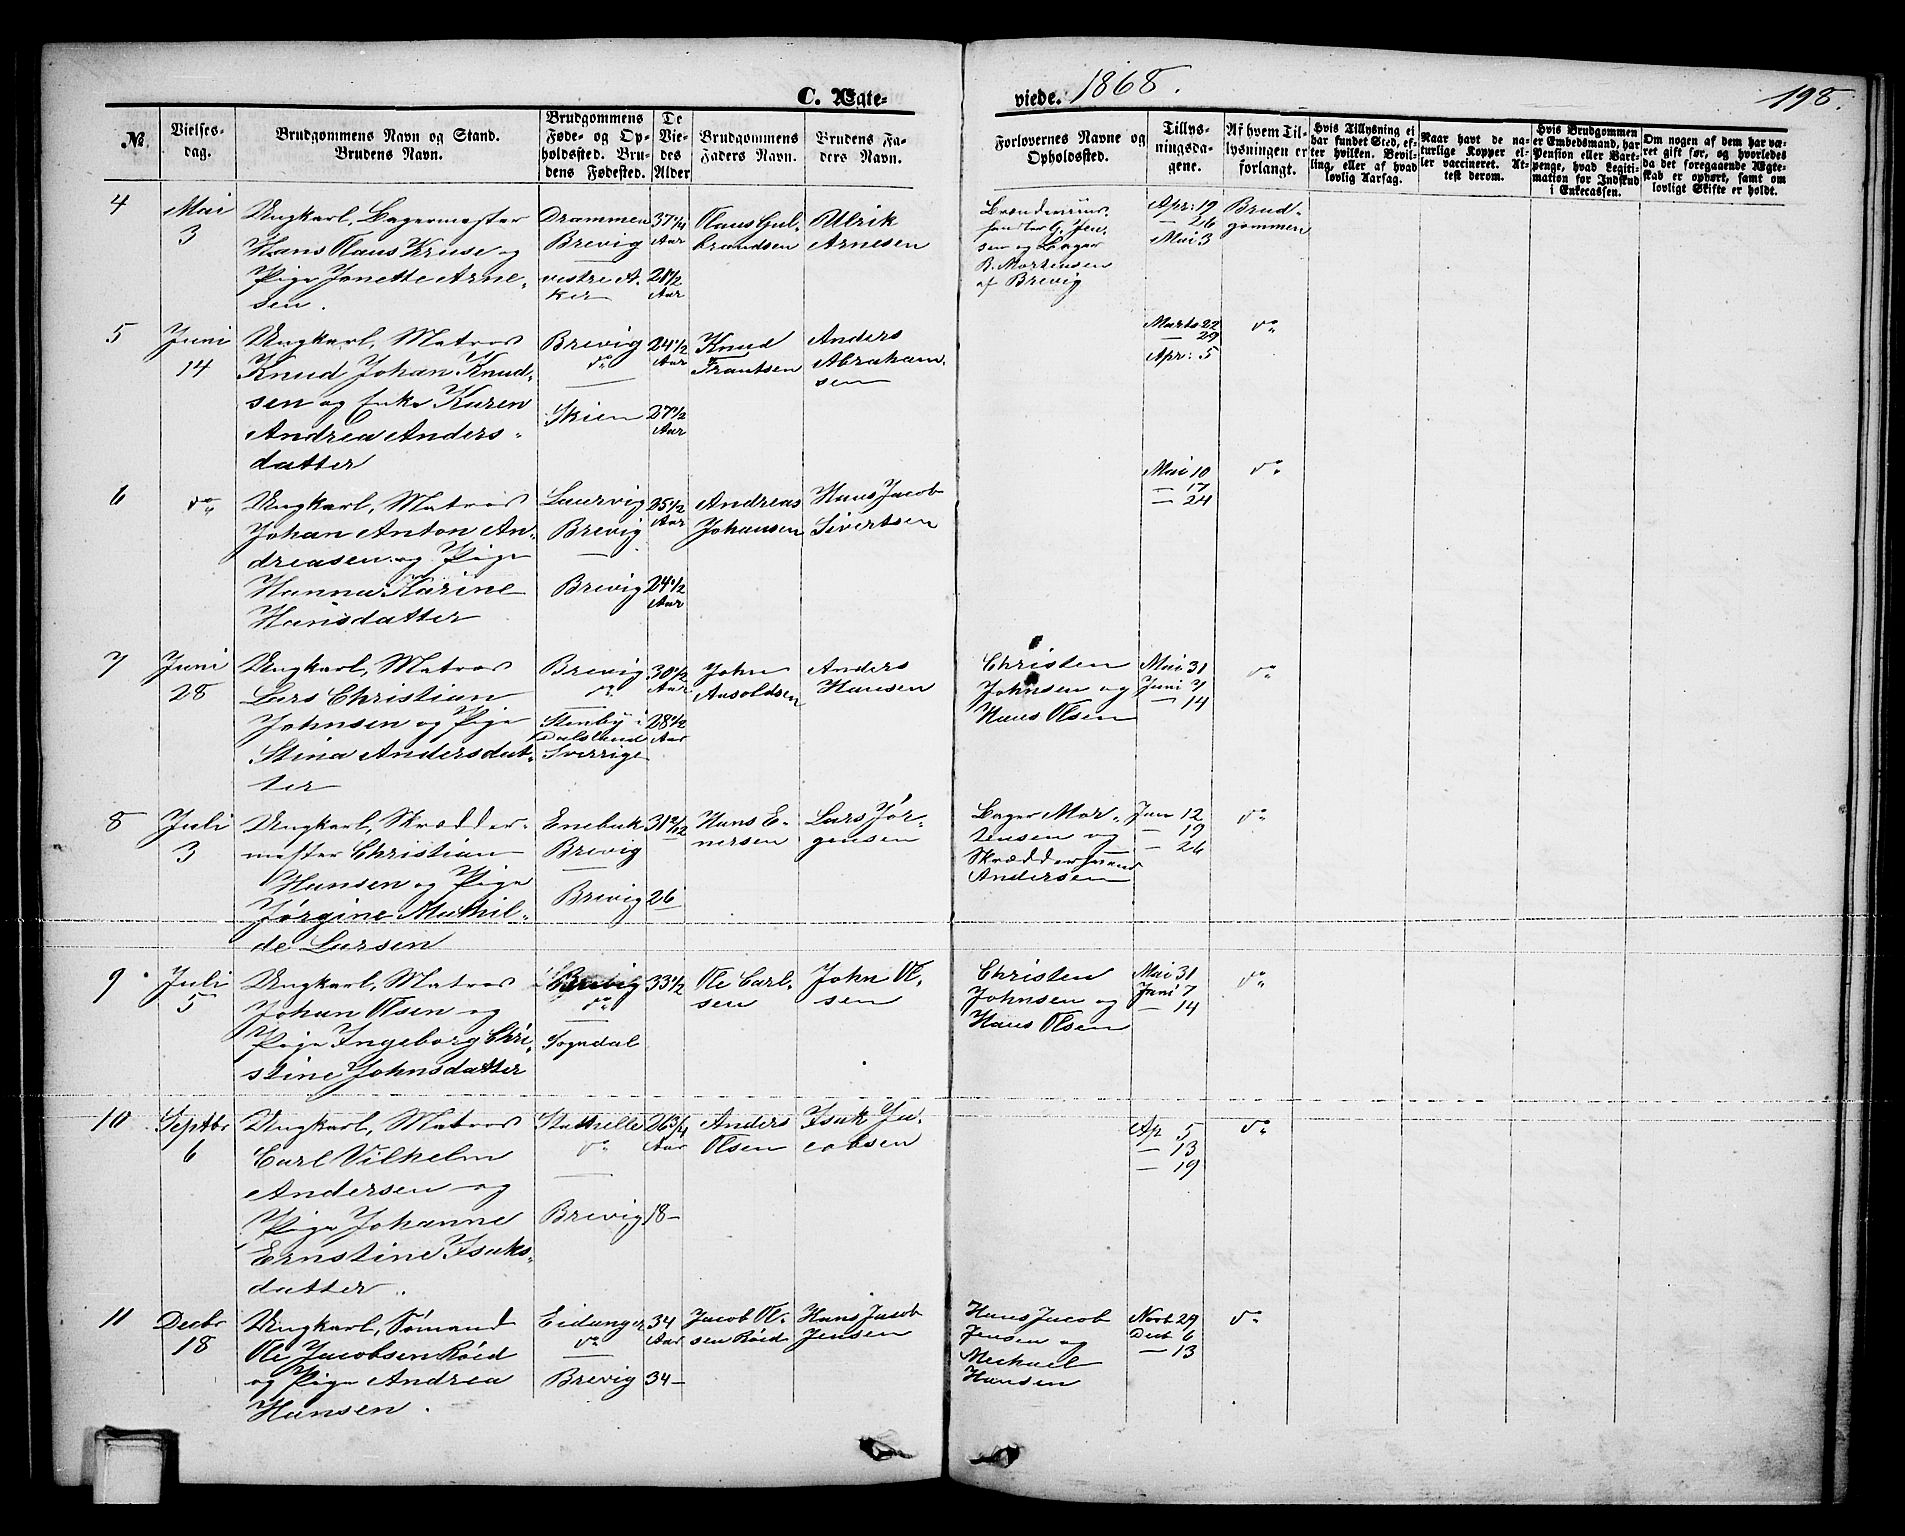 C. Ægte-
viede. 1868.
198.
№
Vielses-
dag.
Brudgommens Navn og Stand.
Brudens Navn.
Brudgommens
Føde- og Op-
holdssted. Bru-
dens Fødested.
De
Vie-
des
Alder
Brudgommens
Faders Navn.
Brudens Fa-
ders Navn.
Forlovernes Navne og
Opholdssted.
Tillys-
ningsda-
gene.
Af hvem Til-
lysningen er
forlangt.
Hvis Tillysning ei
har fundet Sted, ef-
ter hvilken Bevil-
ling, eller af hvad
lovlig Aarsag.
Naar havt de na-
turlige Kopper el-
ler vaccineret. At-
test derom.
Hvis Brudgommen
er Embedsmand, har
Pension eller Vart-
penge, hvad Legiti-
mation for Indskud
i Enkecassen.
Om nogen af dem har væ-
ret gift før, og hvorledes
da det foregaaende Ægte-
skab er ophørt, samt om
lovligt Skifte er holdt.
4
Mai
3
Ungkarl, Bagermester
Hans Claus Kruse og
Pige Janette Arne-
sen.
Drammen
Brevig
vestre A-
ker
37 1/4
Aar
21 1/2
Aar
Claus Gul-
brandsen
Ulrik
Arnesen
sen og Bager
B. Mortensen
af Brevig
Apr: 19
— 26
Mai 3
Brud-
gommen
5
Juni
14
Ungkarl, Matros
Knud Johan Knud-
sen og Enke Karen
Andrea Anders-
datter
Brevig
do
Skien
24 1/2
Aar
27 1/2
Aar
Knud
Frantsen
Anders
Abraham-
sen
Marts 22
— 29
Apr: 5
do
6
do
Ungkarl, Matros
Johan Anton An-
dreasen og Pige
Hanna Karine
Hansdatter
Laurvig
Brevig
Brevig
25 1/2
Aar
24 1/2
Aar
Andreas
Johansen
Hans Jacob
Sivertsen
Mai 10
— 17
— 24
do
7
Juni
28
Ungkarl, Matros
Lars Christian
Johnsen og Pige
Stina Andersdat-
ter
Brevig
do
Stenby i
Dalsland
Sverrige
30 1/2
Aar
28 1/2
Aar
John
Aasoldsen
Anders
Hansen
Christen
Johnsen og
Hans Olsen
Mai 31
Juni 7
— 14
do
8
Juli
3
Ungkarl, Skrædder-
mester Christian
Hansen og Pige
Jørgine Mathil-
de Larsen
Enebak
Brevig
Brevig
26
Hans E-
nersen
Lars Jør-
gensen
Bager Mor-
tensen og
Andersen
Jun 12
— 19
— 26
do
9
Juli
5
Ungkarl, Matros
Johan Olsen og
Pige Ingeborg Chri-
stine Johnsdatter
Brevig
do
Sogndal
33 1/2
Ole Carl-
sen
John Ol-
sen
Christen
Johnsen og
Hans Olsen
Mai 31
Juni 7
— 14
do
10
Septbr
6
Ungkarl, Matros
Carl Vilhelm
Andersen og
Pige Johanne
Ernstine Isaks-
datter.
Stathelle
do
Brevig
26 3/4
Aar
18 —
Anders
Olsen
Isak Ja-
cobsen
Ap 5
— 13
— 19
do
11
Decbr
18
Ungkarl, Sømand
Ole Jacobsen Röed
og Pige Andrea
Hansen.
Eidanger
do
Brevig
34
Aar
34 —
Jacob Ol-
sen Röed
Hans Jacob
Jensen
Hans Jacob
Jensen og
Michael
Hansen
Novb 29
Decb 6
— 13
do